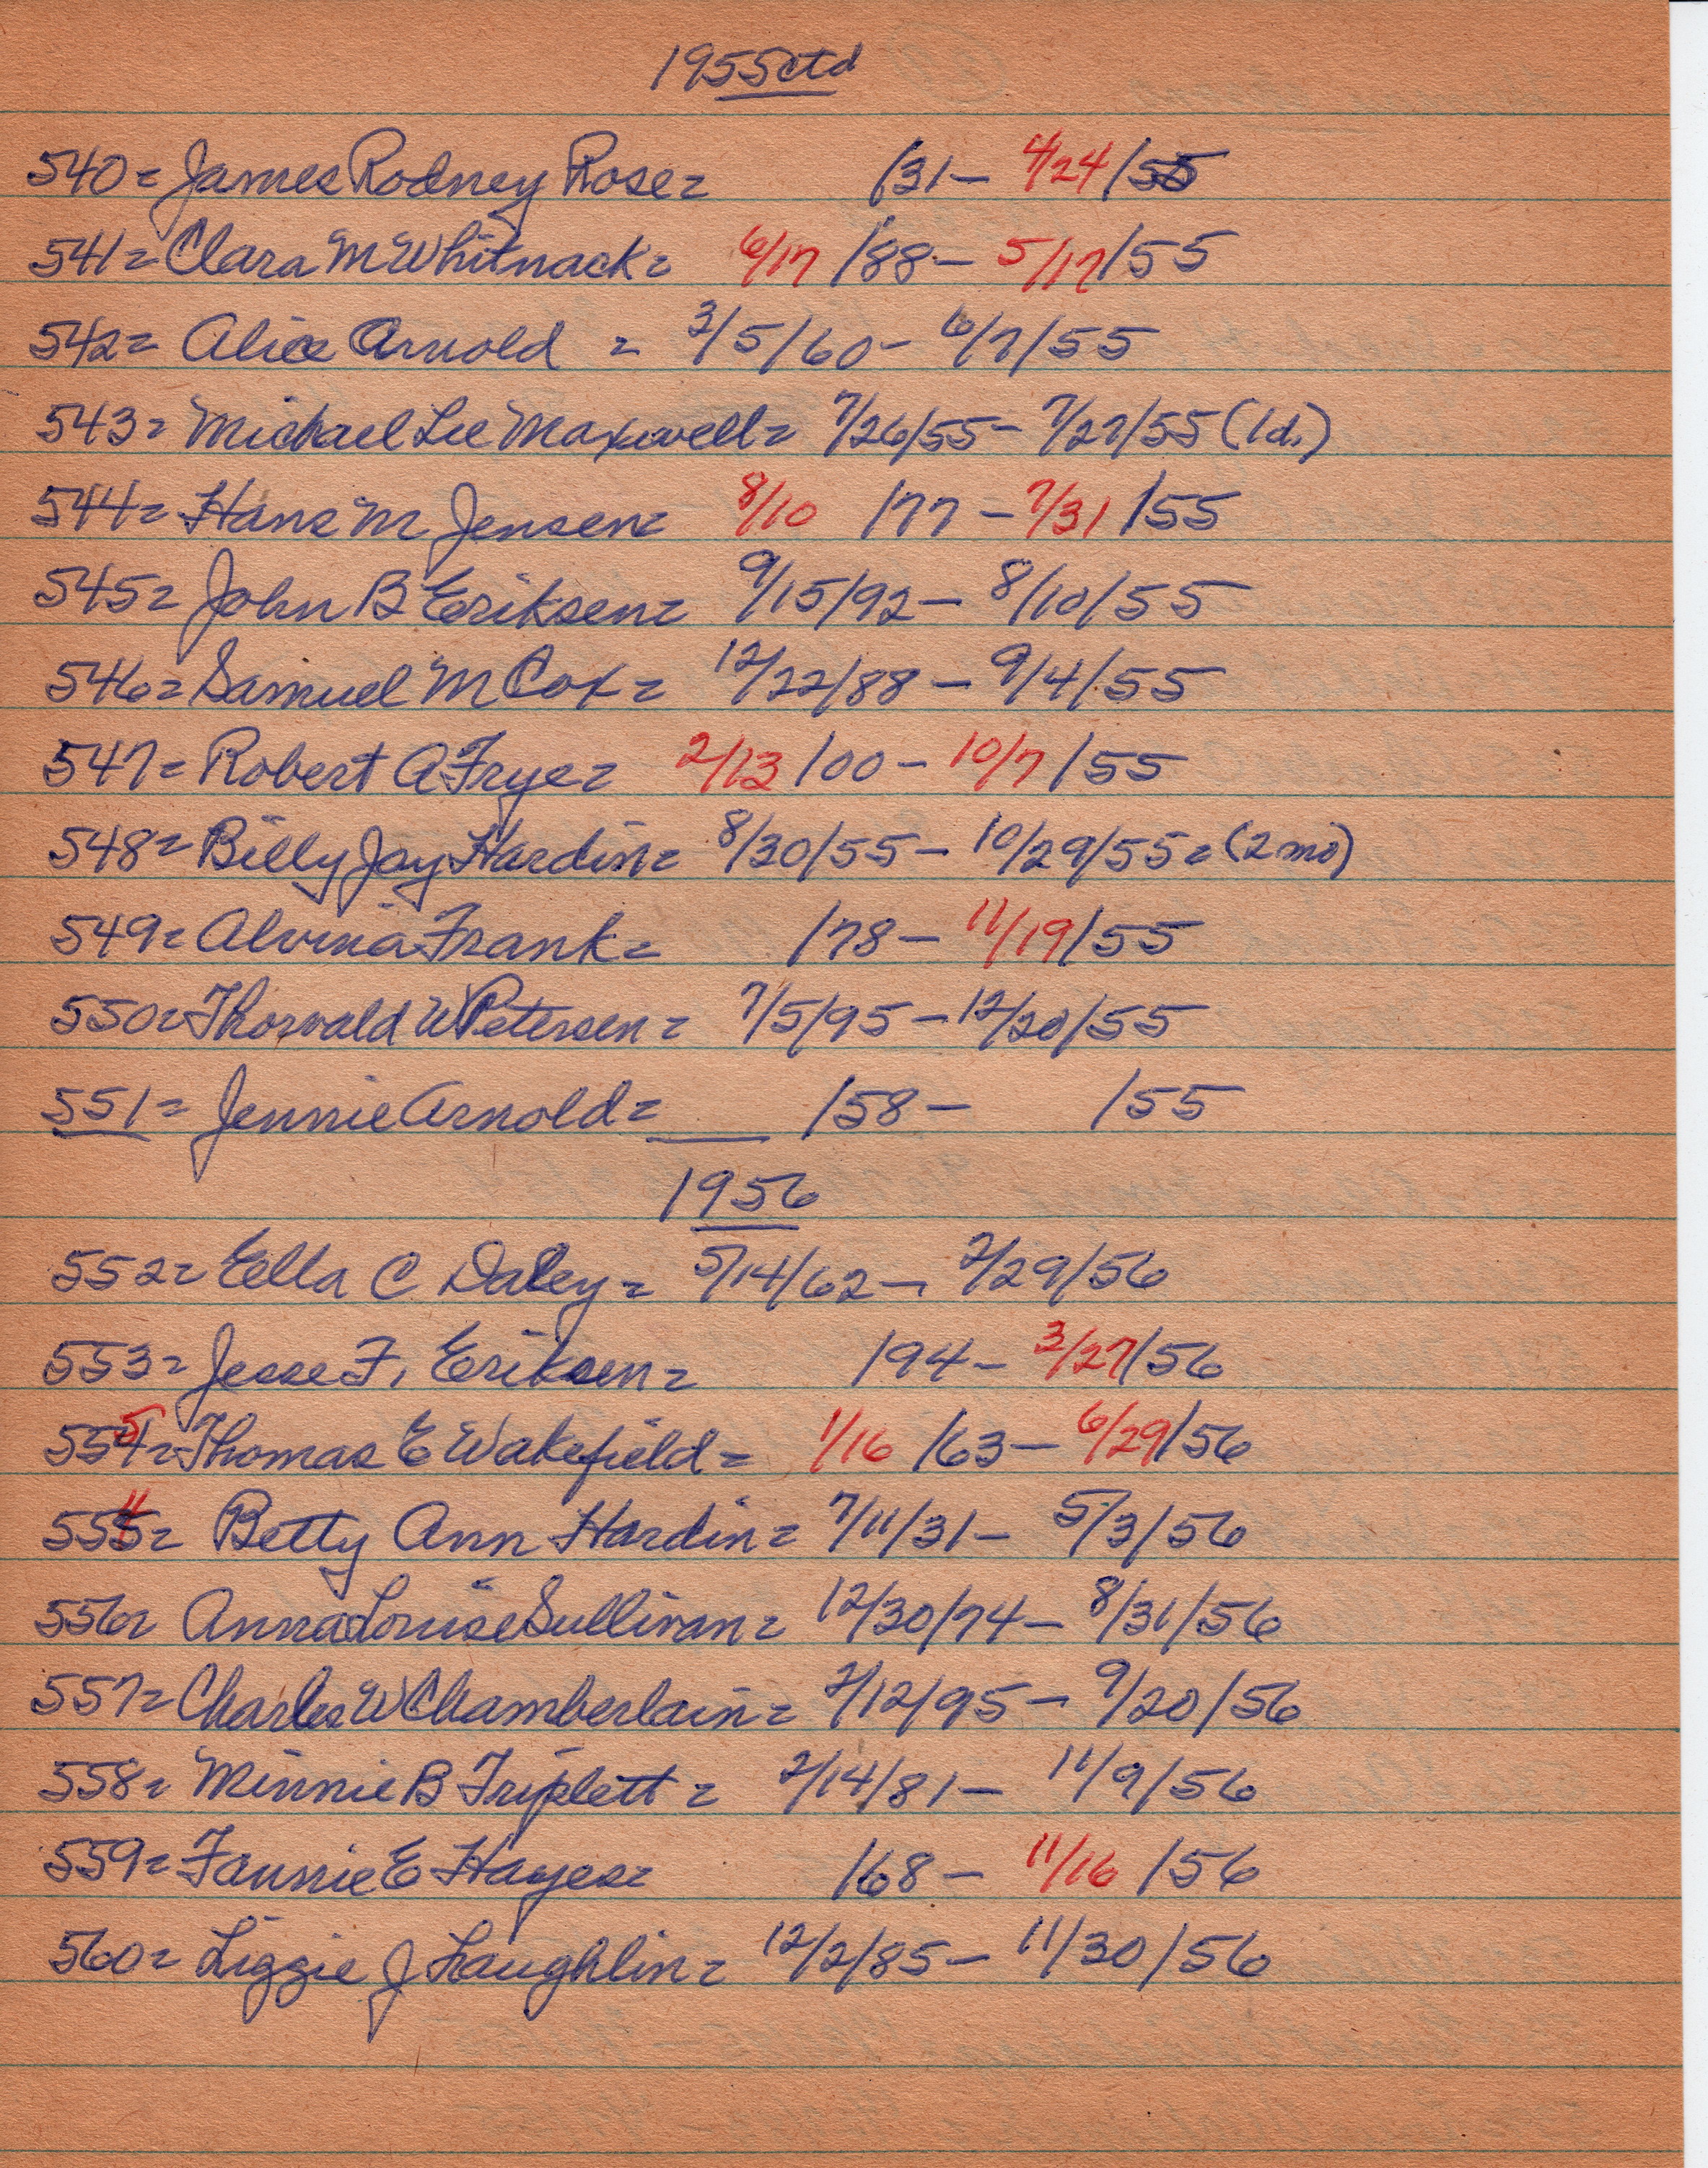 1955 ctd
540= James Rodney Rose= /31- 4/24/55
541= Clara M Whitnack= 6/17/88- 5/17/55
542= Alice Arnold = 3/5/60- 6/7/55
543= Michael Lee Maxwell= 7/26/55- 7/27/55 (1d.)
544= Hans M Jensen= 8/10/77- 7/31/55
545= John B Eriksen= 9/15/92- 8/10/55
546= Samuel M Cox= 12/22/88- 9/4/55
547= Robert A Frye= 2/13/00- 10/7/55
548= Billy Jay Hardin= 8/30/55- 10/29/55= (2 mo)
549= Alvina Frank= /78- 11/19/55
550= Thorvald W Petersen= 7/5/95- 12/20/55
551= Jennie Arnold= /58- /55
1956
552= Ella C Daley= 5/14/62- 2/29/56
553= Jesse F. Eriksen= /94- 3/27/56
555= Thomas E Wakefield= 1/16/63- 6/29/56
554= Betty Ann Hardin= 7/11/31- 5/3/56
556= Anna Louise Sullivan= 12/30/74- 8/31/56
557= Charles W Chamberlain= 2/12/95- 9/20/56
558= Minnie B Triplett= 2/14/81- 11/9/56
559= Fannie E Hayes= /68- 11/16/56
560= Lizzie J Laughlin= 12/2/85- 11/30/56